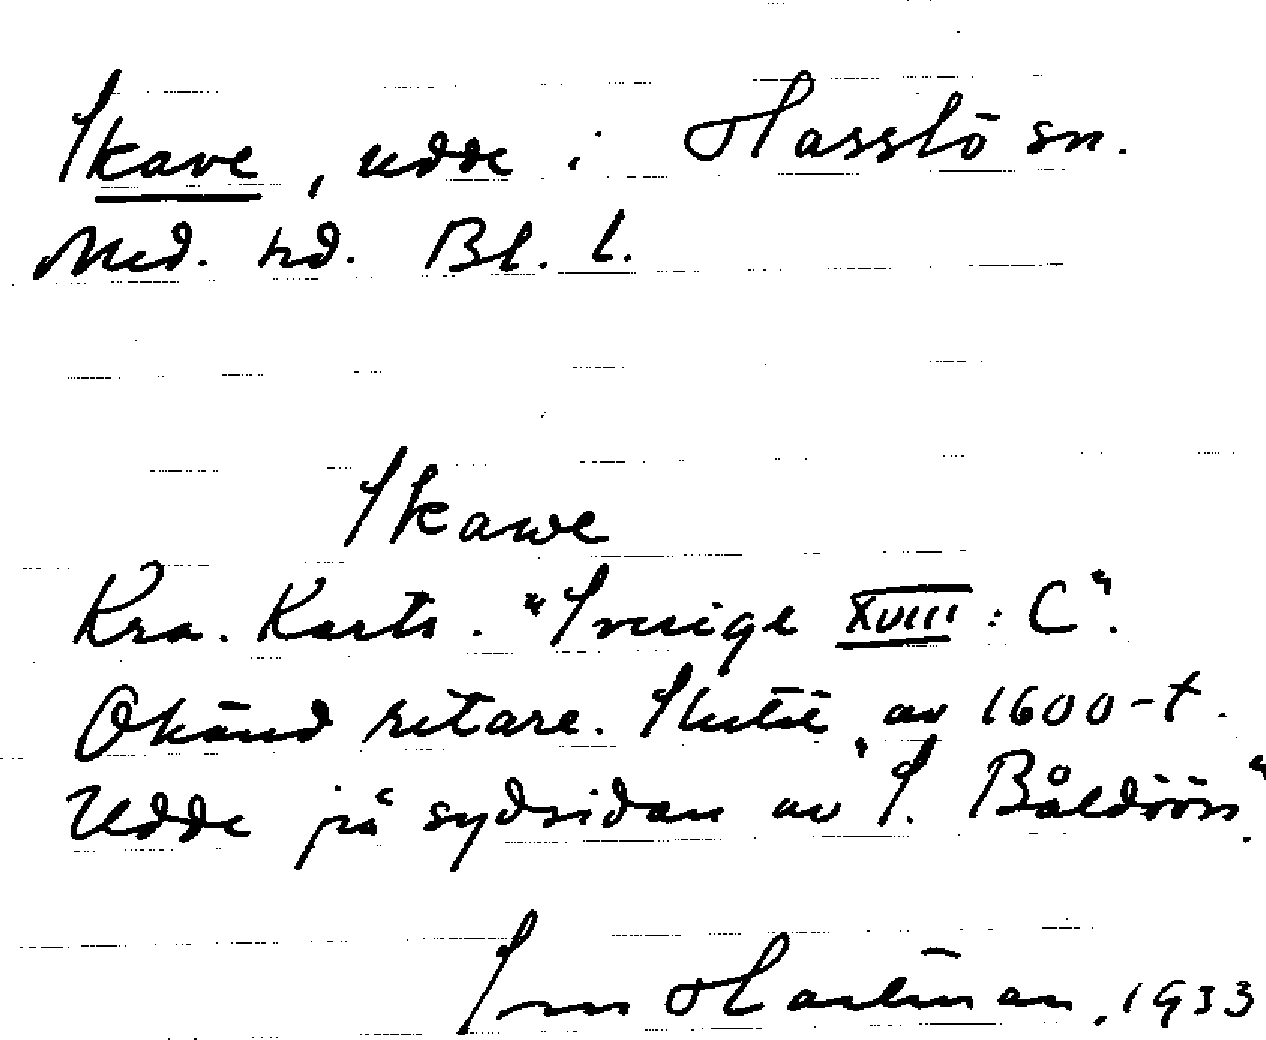 Skave, udde i Hasslö sn.
Med. hd. Bl. l.
Skawe
Kra. Kartv. "Sverige XVIII: C".
Okänd ritare. Slutet av 1600-t.
Udde på sydsidan av "S. Båldöön".
Sven Hartman, 1933